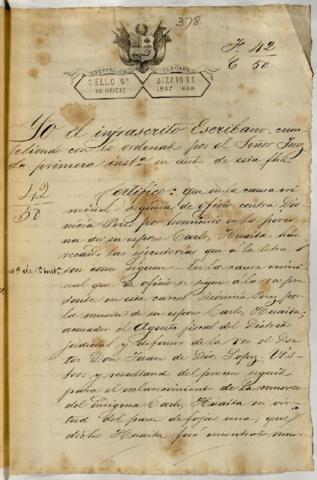 378
F. 42
C 50
REPUBLICA PERUANA
SELLO DE OFICIO
BIENIO DE 1867 868
Yo el infrascrito Escribano, cum
pliendo con lo ordenado por el Señor Juez
de primera instª en auto de esta fha.
42
50
Certifico: que en la causa cri
minal seguida de oficio contra Dio
nicia Perez por homicidio en la perso
na de su esposo Carlos Huaita han
recaido las ejecutorias que a la letra
son como siguen — En la causa crimi
nal que de oficio se sigue a la rea pre
sente en esta carcel Dionicia Perez por
la muerte de su esposo Carlos Huaita;
acusador el Agente fiscal del Distrito
judicial y defensor de la reo el Doc
tor Don Juan de Dios Lopez. Vis
tos y resultando del proceso seguido
para el esclarecimiento de la muerte
del indigena Carlos Huaita en vir
tud del parte de fojas una, que
dicho Huaita fué encontrado muer